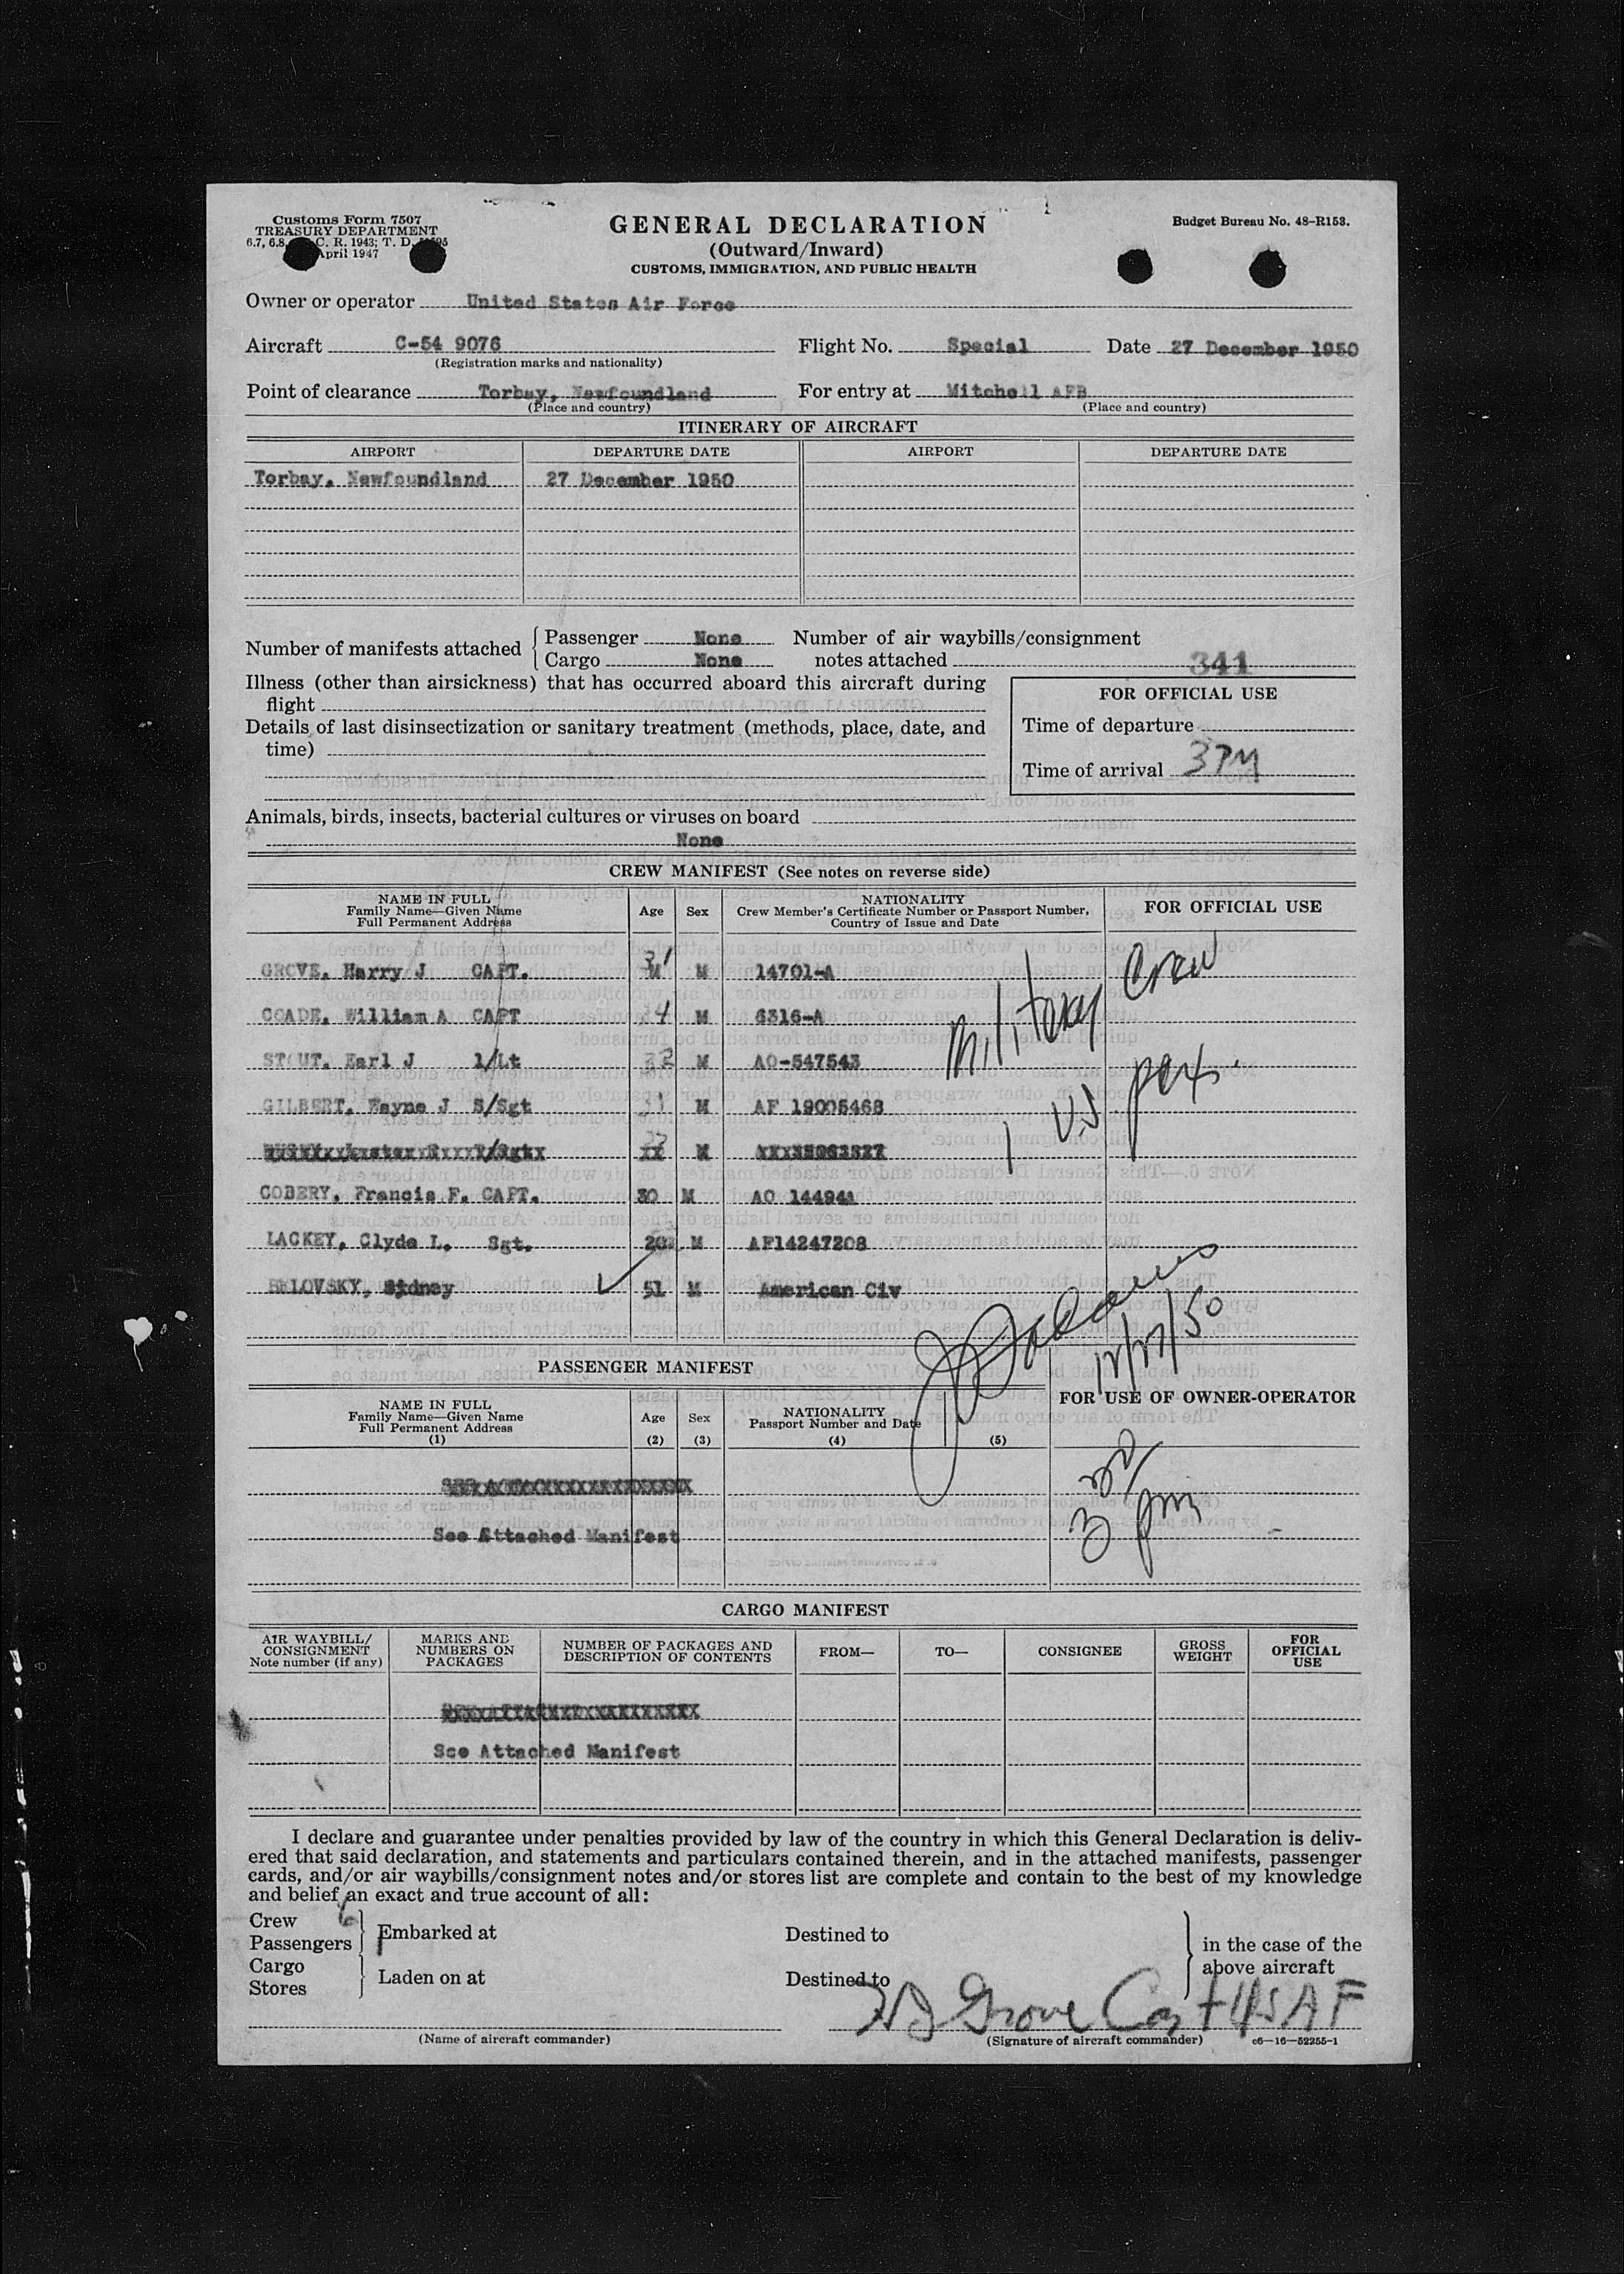 Customs Form 7507
TREASURY DEPARTMENT
6.7, 6.8, C. R. 1943; T. D.
April 1947
GENERAL DECLARATION
(Outward/Inward)
CUSTOMS, IMMIGRATION, AND PUBLIC HEALTH
Budget Bureau No. 48-R153.
Owner or operator United States Air Force
Aircraft C-54 9076 Flight No. Special Date 27 December 1950
(Registration marks and nationality)
Point of clearance Torbay, Newfoundland For entry at Mitchell AFB
(Place and country) (Place and country)
ITINERARY OF AIRCRAFT
AIRPORT DEPARTURE DATE AIRPORT DEPARTURE DATE
Torbay, Newfoundland 27 December 1950
Number of manifests attached Passenger None Number of air waybills/consignment
Cargo None notes attached 341
Illness (other than airsickness) that has occurred aboard this aircraft during
flight
Details of last disinsectization or sanitary treatment (methods, place, date, and
time)
FOR OFFICIAL USE
Time of departure
Time of arrival 3 PM
Animals, birds, insects, bacterial cultures or viruses on board
None
CREW MANIFEST (See notes on reverse side)
NAME IN FULL
Family Name—Given Name
Full Permanent Address
Age
Sex
NATIONALITY
Crew Member's Certificate Number or Passport Number,
Country of Issue and Date
FOR OFFICIAL USE
GROVE, Harry J CAPT. 31 M 14701-A
COADE, William A CAPT 34 M 6316-A
STOUT, Earl J 1/Lt 32 M AO-547543
GILBERT, Wayne J S/Sgt 31 M AF 19005468
COBERY, Francis F. CAPT. 30 M AO 144941
LACKEY, Clyde L. Sgt. M AF14247208
BELOVSKY, Sidney 51 M American Civ
Military Crew
1 US pax.
12/27/50
PASSENGER MANIFEST
NAME IN FULL
Family Name—Given Name
Full Permanent Address
(1)
Age
(2)
Sex
(3)
NATIONALITY
Passport Number and Date
(4) (5)
FOR USE OF OWNER-OPERATOR
See Attached Manifest
3 pm
CARGO MANIFEST
AIR WAYBILL/
CONSIGNMENT
Note number (if any)
MARKS AND
NUMBERS ON
PACKAGES
NUMBER OF PACKAGES AND
DESCRIPTION OF CONTENTS
FROM—
TO—
CONSIGNEE
GROSS
WEIGHT
FOR
OFFICIAL
USE
See Attached Manifest
I declare and guarantee under penalties provided by law of the country in which this General Declaration is deliv-
ered that said declaration, and statements and particulars contained therein, and in the attached manifests, passenger
cards, and/or air waybills/consignment notes and/or stores list are complete and contain to the best of my knowledge
and belief an exact and true account of all:
Crew 6
Passengers 1 Embarked at Destined to
Cargo
Stores Laden on at Destined to
in the case of the
above aircraft
HJ Grove Capt USAF
(Name of aircraft commander) (Signature of aircraft commander) c6—16—52255-1